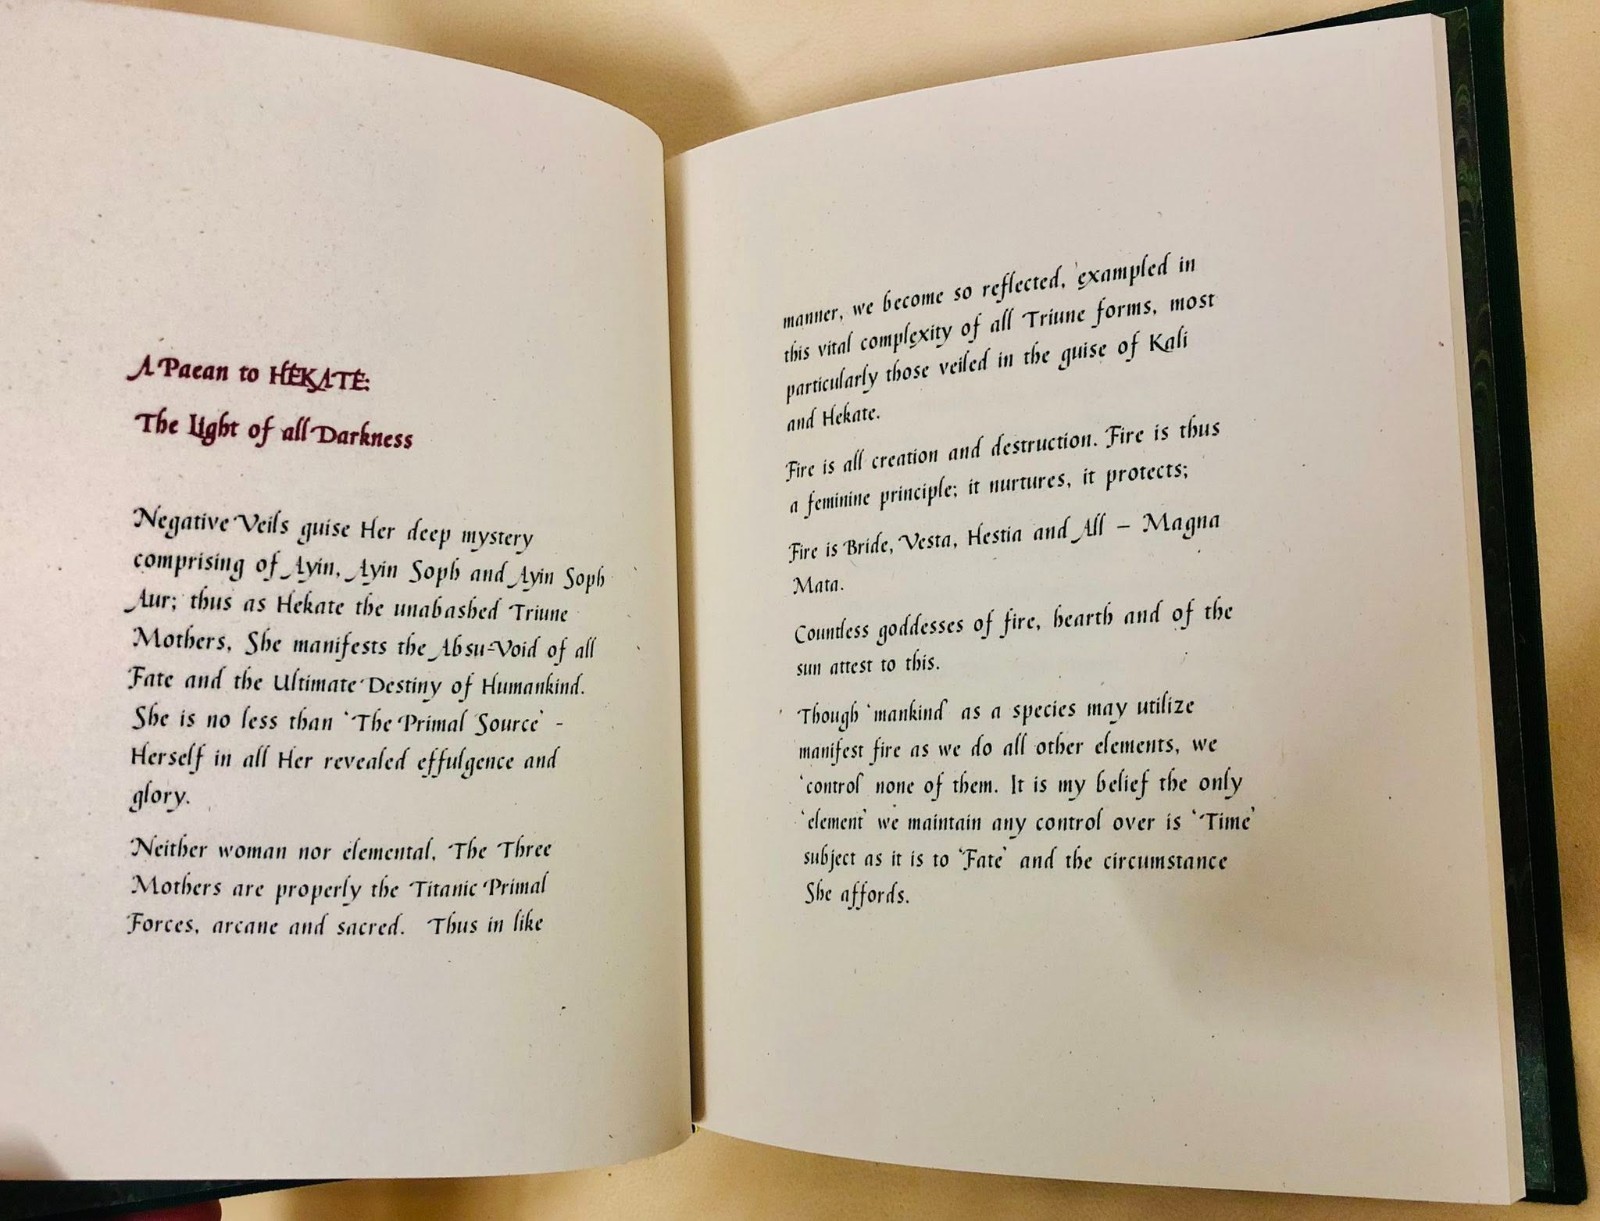 A Paean to HEKATE:
The Light of all Darkness
Negative Veils guise Her deep mystery
comprising of Ayin, Ayin Soph and Ayin Soph
Aur; thus as Hekate the unabashed Triune
Mothers, She manifests the Absu-Void of all
Fate and the Ultimate Destiny of Humankind.
She is no less than 'The Primal Source' -
Herself in all Her revealed effulgence and
glory.
Neither woman nor elemental, The Three
Mothers are properly the Titanic Primal
Forces, arcane and sacred. Thus in like
manner, we become so reflected, exampled in
this vital complexity of all Triune forms, most
particularly those veiled in the guise of Kali
and Hekate.
Fire is all creation and destruction. Fire is thus
a feminine principle; it nurtures, it protects;
Fire is Bride, Vesta, Hestia and All – Magna
Mata.
Countless goddesses of fire, hearth and of the
sun attest to this.
Though 'mankind' as a species may utilize
manifest fire as we do all other elements, we
'control' none of them. It is my belief the only
'element' we maintain any control over is 'Time'
subject as it is to 'Fate' and the circumstance
She affords.